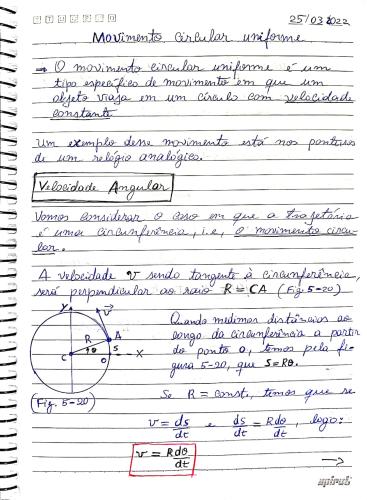 25/03/2022
Movimento circular uniforme.
→ O movimento circular uniforme é um
tipo específico de movimento em que um
objeto viaja em um círculo com velocidade
constante.
Um exemplo desse movimento está nos ponteiros
de um relógio analógico.
Velocidade Angular
Vamos considerar o caso em que a trajetória
é uma circunferência, i.e, o movimento circu-
lar.
A velocidade v sendo tangente à circunferência,
será perpendicular ao raio R = CA (Fig 5-20)
Quando medimos distâncias ao
longo da circunferência a partir
do ponto O, temos pela fi-
gura 5-20, que S=Rθ.
y v R A C θ S O X
(Fig. 5-20)
Se R = const., temos que se
v = ds/dt e ds/dt = Rdθ/dt, logo:
v = Rdθ/dt
→
spiral